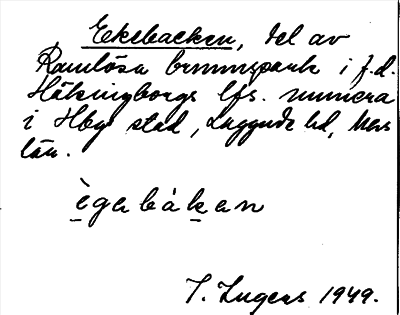 Ekebacken, del av
Ramlösa brunnspark i f.d.
Hälsingborgs lfs. numera
i Hbgs stad, Luggude hd, Mlms
län.
ègabàkan
I. Ingers 1949.